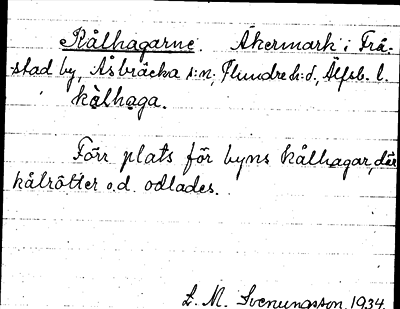 Kålhagarne. Åkermark i Frå-
stad by, Åsbräcka s:n, Flundre h:d, Älfsb. l.
kålhaga.
Förr plats för byns kålhagar, där
kålrötter o.d. odlades.
L. M. Svenungsson, 1934.